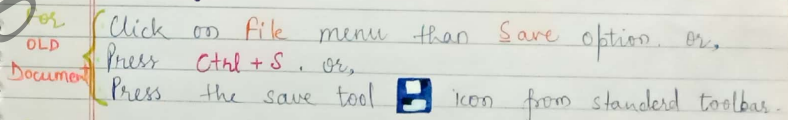 For
OLD
Document
Click on File menu than Save option. or,
Press Ctrl + S. or,
Press the save tool icon from standerd toolbar.